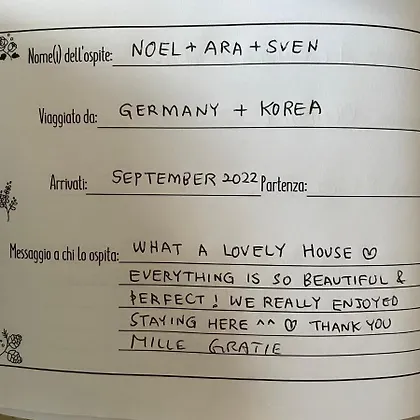 Nome(i) dell'ospite: NOEL + ARA + SVEN
Viaggiato da: GERMANY + KOREA
Arrivati: SEPTEMBER 2022 Partenza:
Messaggio a chi lo ospita: WHAT A LOVELY HOUSE ♡
EVERYTHING IS SO BEAUTIFUL &
PERFECT! WE REALLY ENJOYED
STAYING HERE ^^ ♡ THANK YOU
MILLE GRATIE